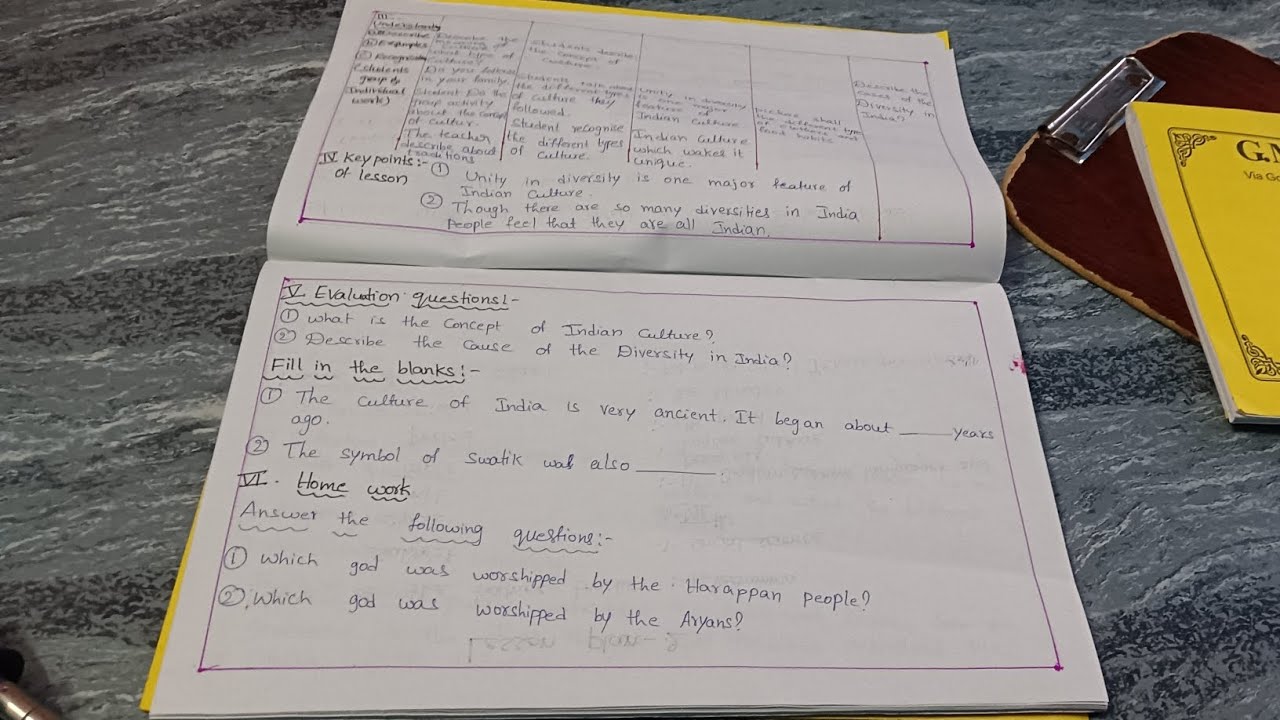 III.
Understanding
① Describe
② Examples
③ Recognise
(students
group &
Individual
work)
Describe the
meaning of
culture?
what type of
culture?
Do you follow
in your family.
Student Do the
group activity
about the concept
of cultur.
The teacher
describe about
traditions
Students describe
the concept of
culture.
Student talk about
the different types
of culture they
followed.
Student recognise
the different types
of culture.
Unity in diversity
is one major
feature of
Indian Culture
Indian culture
which wakes it
unique.
picture shall
the different type
of culture and
food habits
Describe the
cases of the
Diversity in
India?
IV Key points:-
of lesson
① Unity in diversity is one major feature of
Indian Culture.
② Though there are so many diversities in India
People feel that they are all Indian.
V. Evaluation questions:-
① what is the concept of Indian Culture?
② Describe the cause of the Diversity in India?
Fill in the blanks:-
① The culture of India is very ancient. It began about ______ years
ago.
② The symbol of Swatik was also ________.
VI. Home work
Answer the following questions:-
① which god was worshipped by the Harappan people?
②. which god was worshipped by the Aryans?
G.M
Via Go